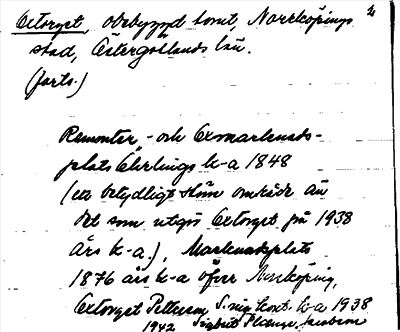 Oxtorget, obebyggd tomt, Norrköpings 2
stad, Östergötlands län.
(forts.)
Remonter- och Oxmarknads-
plats Ehrlings k-a 1848
(ett betydligt större område än
det som utgör Oxtorget på 1938
års k-a.), Marknadsplats
1876 års k-a över Norrköping,
Oxtorget Petterson, S. nig kont. k-a 1938
1942 Sigbrit Plænge Jacobson